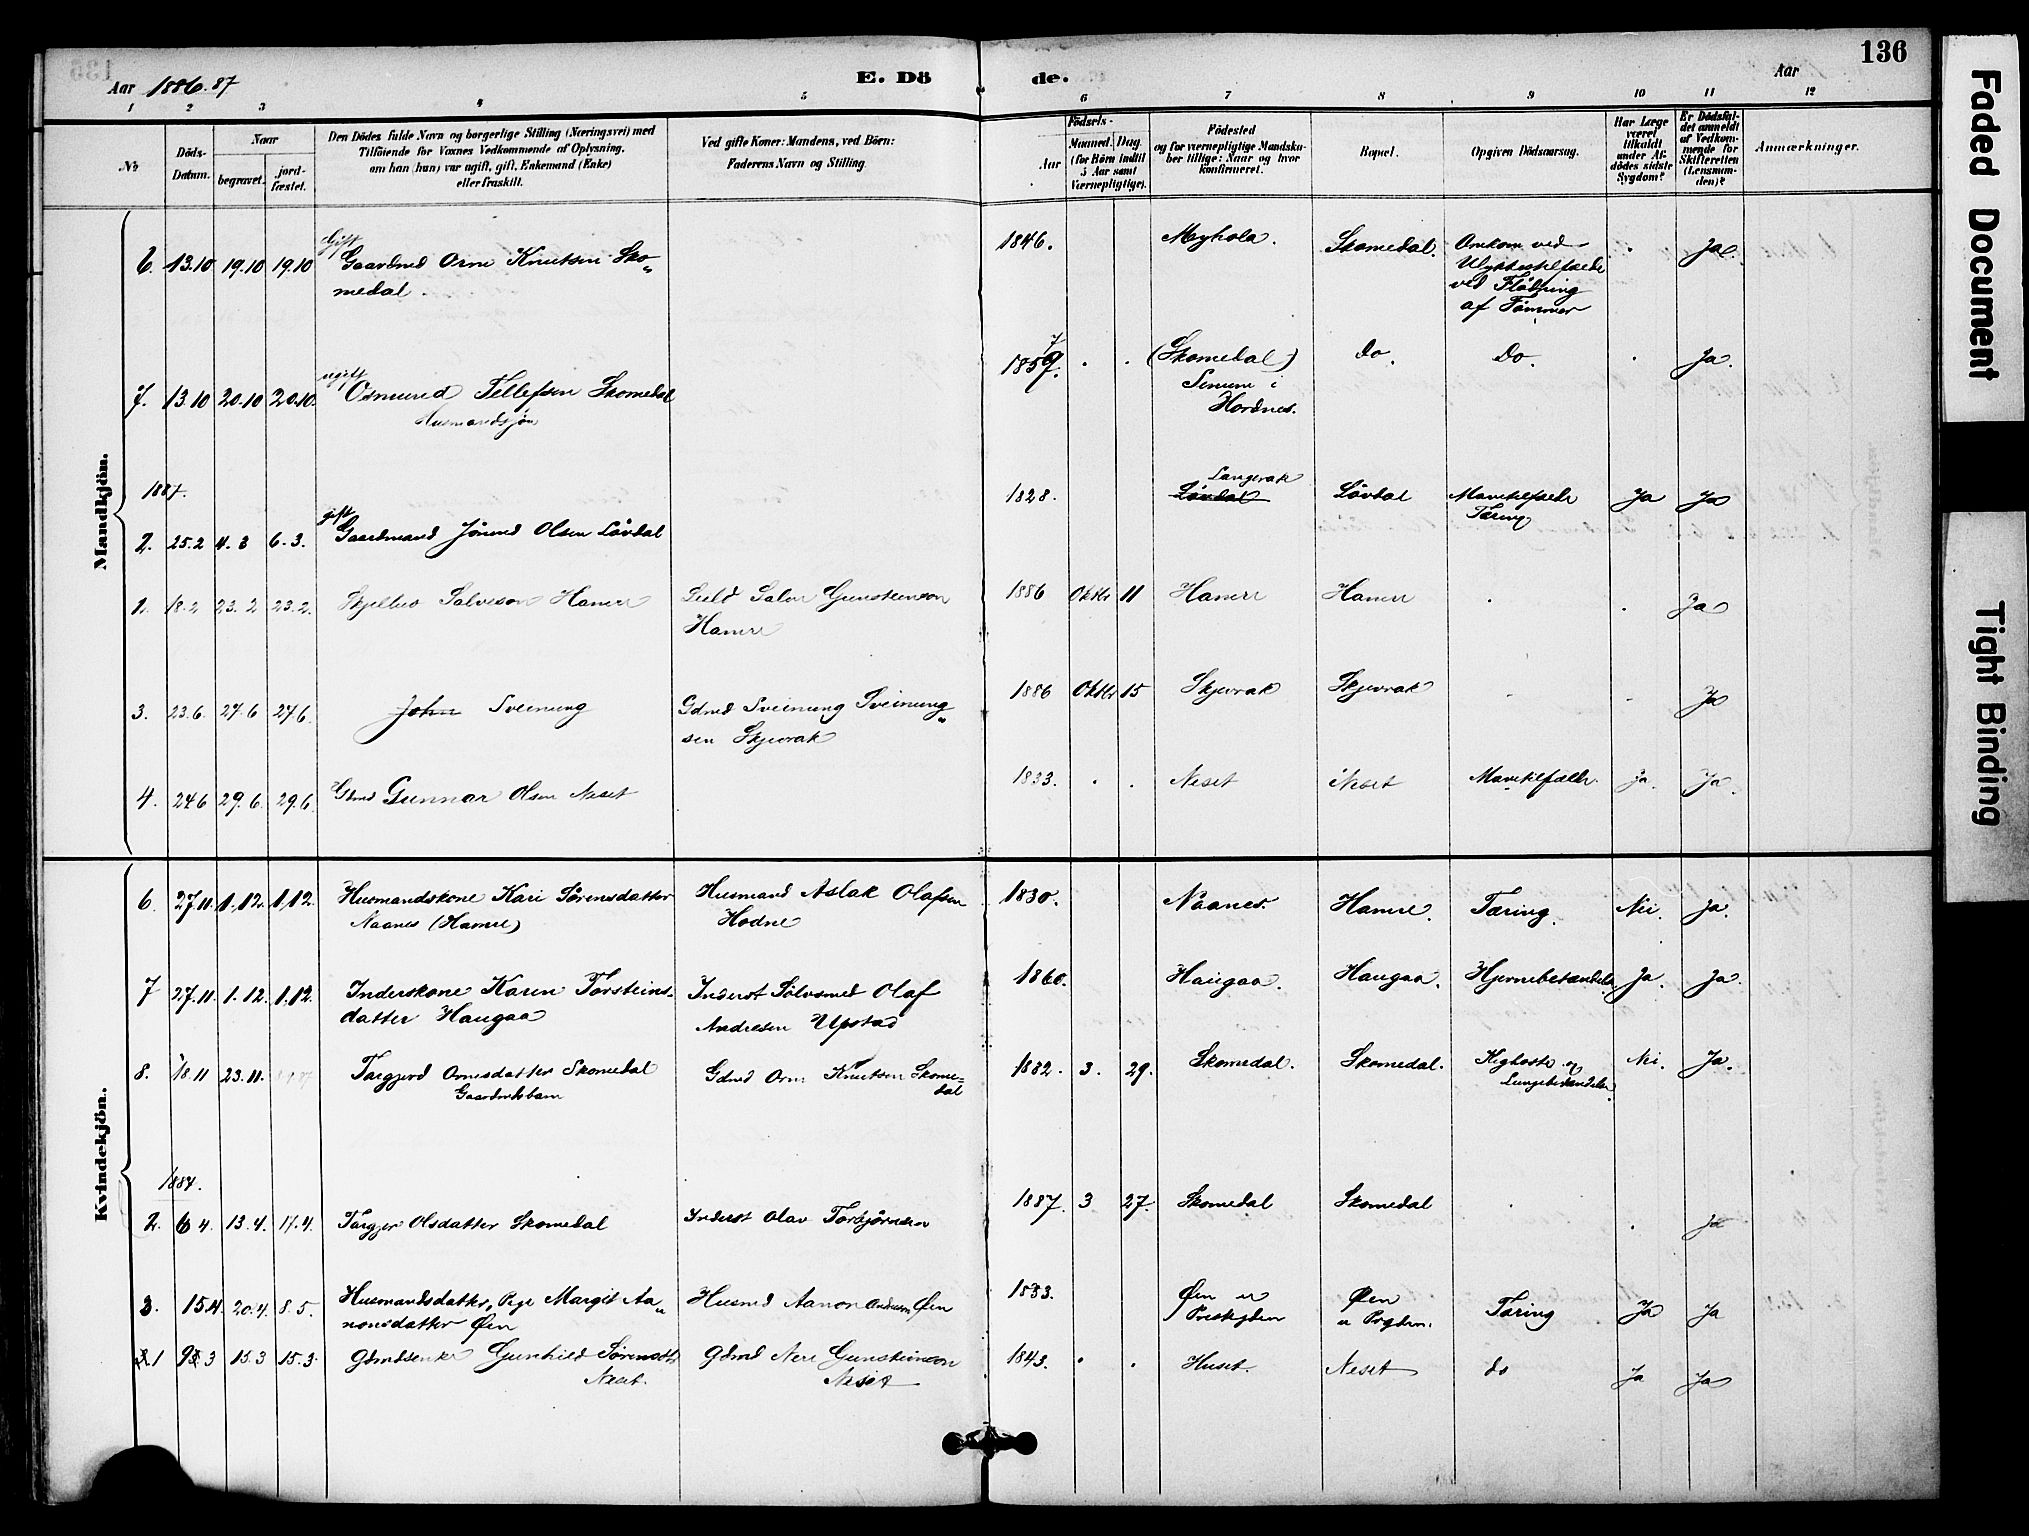 136
Aar 1886.87
E. Döde.
Aar
1 2 3 4 5 6 7 8 9 10 11 12
No
Döds-Datum.
Naar
begravet.
jordfæstet.
Den Dödes fulde Navn og borgerlige Stilling (Næringsvei) med
Tilföiende for Voxnes Vedkommende af Oplysning,
om han (hun) var ugift, gift, Enkemand (Enke)
eller fraskilt.
Ved gifte Koner: Mandens, ved Börn:
Faderens Navn og Stilling.
Födsels-
Aar
Maaned.
Dag
(for Börn indtil
5 Aar samt
Værnepligtige).
Födested
og for værnepligtige Mandskaber tillige: Naar og hvor
konfirmeret.
Bopæl.
Opgiven Dödsaarsag.
Har Læge
været
tilkaldt
under Afdödes sidste
Sygdom?
Er Dödsfaldet anmeldt
af Vedkommende for
Skifteretten
(Lensmanden)?
Anmærkninger.
Mandkjön.
6. 13.10 19.10 19.10 Gift Gaardmd Orm Knutsen Skomedal. 1846. Myhola. Skomedal. Omkom ved Ulykkestilfælde ved Flödning af Tömmer Ja.
7. 13.10 20.10 20.10. ugift Osmund Tellefsen Skomedal Husmandssön 1859. 7 (Skomedal) Senum i Hordnes. do. Do. Ja.
1887.
2. 25.2 4.3 6.3. gift Gaardmand Jörund Olsen Lövdal 1828. Langerak Lövdal Lövdal Mavetilfælde Tæring Ja Ja
1. 18.2 23.2 23.2. Salveson Hamre Salve Gunsteinson Hamre 1886 Oktbr 11 Hamre Hamre Ja
3. 23.6. 27.6 27.6. John Sveinung Gdmd Sveinung Sveinungsen Skjevrak 1886 Oktbr 15 Skjevrak Skjevrak Ja
4. 24.6 29.6. 29.6. Gdmd Gunnar Olsen Neset 1833. Neset Neset Mavetilfælde. Ja. Ja.
Kvindekjön.
6. 27.11. 1.12. 1.12. Husmandskone Kari Sörensdatter Naanes (Hamre) Husmand Aslak Olafsen Hodne 1830. Naanes. Hamre. Tæring. Nei. Ja.
7 27.11. 1.12. 1.12. Inderskone Karen Torsteinsdatter Haugaa Inderst Sölvsmed Olaf Andresen Upstad 1860. Haugaa. Haugaa. Hjernebetændelse Ja. Ja.
8. 18.11 23.11. Targjerd Ormsdatter Skomedal Gaardmdsbarn Gdmd Orm Knutsen Skomedal 1882. 3. 29. Skomedal. Skomedal. Kighoste og Lungebetændelse. Nei. Ja.
1887.
2. 6.4. 13.4. 17.4. Targjer Olsdatter Skomedal Inderst Olav Torbjörnsen 1887. 3 27. Skomedal Skomedal Ja
3. 15.4. 20.4. 8.5. Husmandsdatter, Pige Margit Aanonsdatter Öen Husmd Aanon Andersen Öen 1833. Öen u Prestegden Öen u Prgden. Tæring Ja Ja
1 9.3 15.3 15.3. Gdmdsenke Gunhild Sörensdtr Neset. Gdmd Neri Gunsteinson Neset 1843. Huset. Neset do Ja Ja
Faded Document
Tight Binding